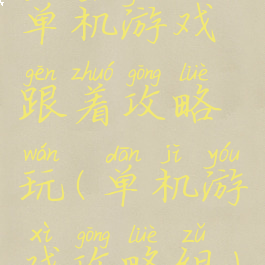 单机游戏
gēn zhuó gōng lüè
跟着攻略
wán dān jī yóu
玩(单机游
xì gōng lüè zǔ
戏攻略组)